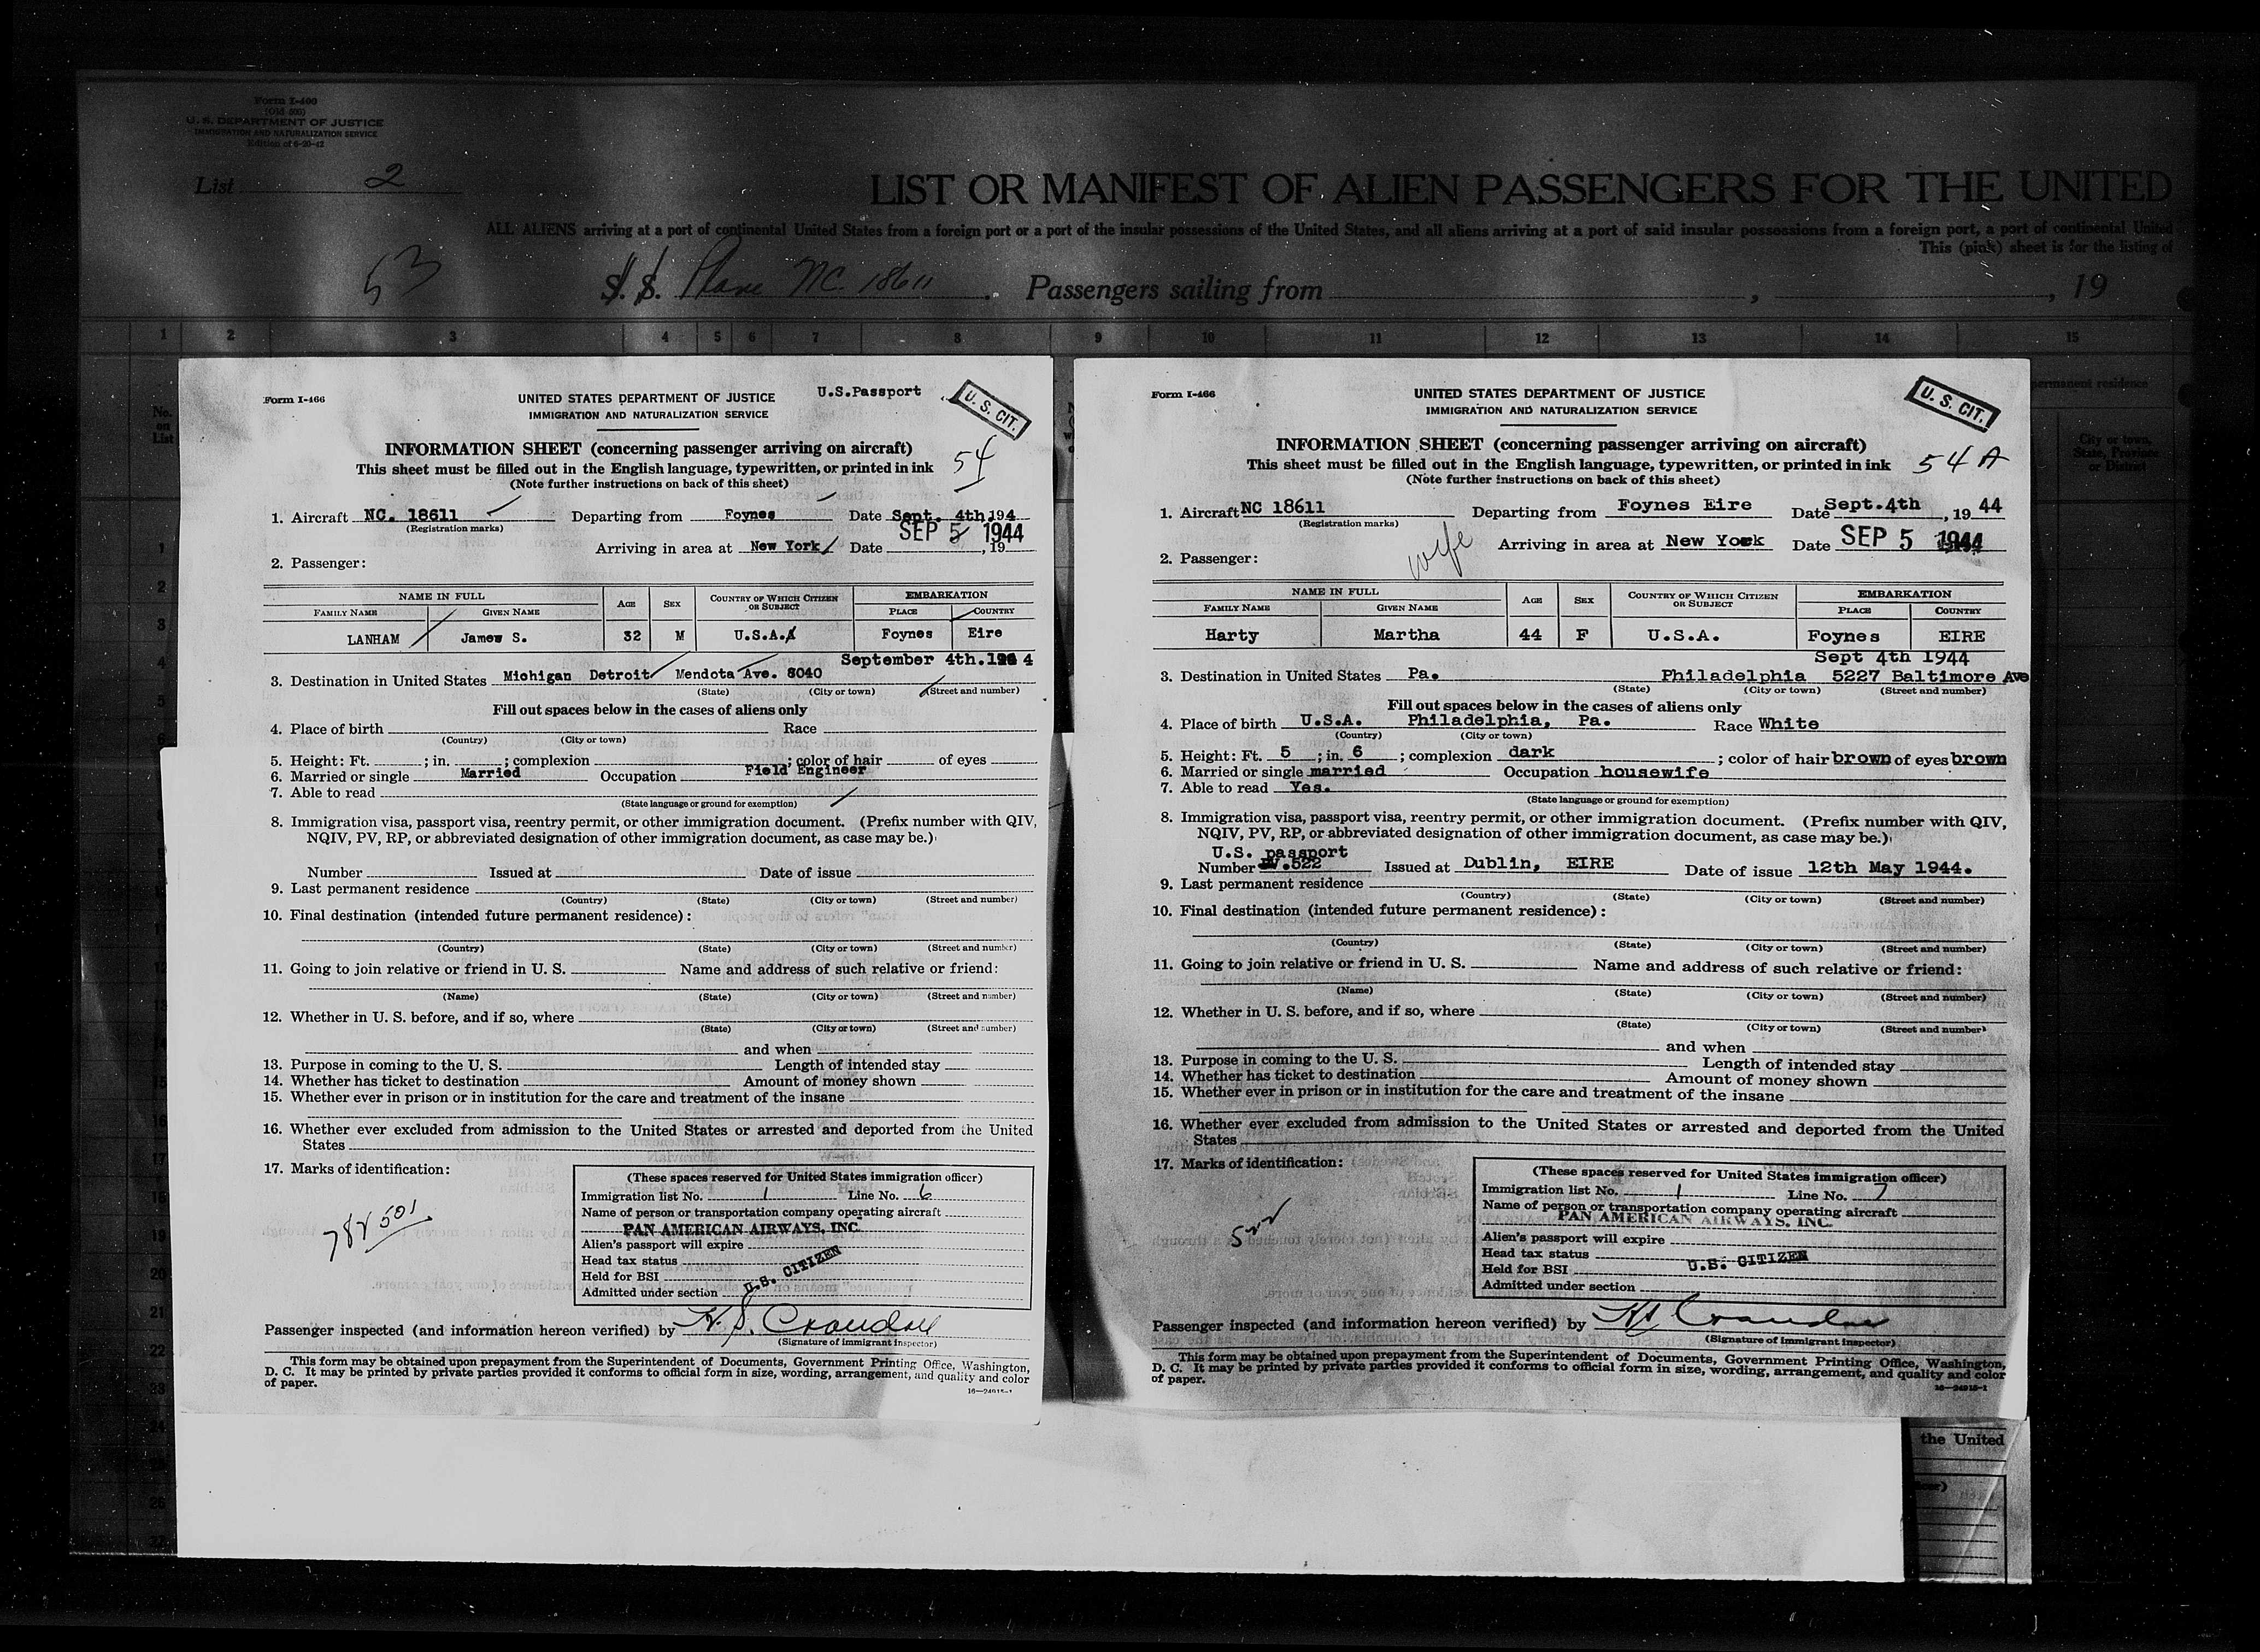 Form I-466
(Old 500)
U. S. DEPARTMENT OF JUSTICE
IMMIGRATION AND NATURALIZATION SERVICE
Edition of 6-20-42
List 2
LIST OR MANIFEST OF ALIEN PASSENGERS FOR THE UNITED
ALL ALIENS arriving at a port of continental United States from a foreign port or a port of the insular possessions of the United States, and all aliens arriving at a port of said insular possessions from a foreign port, a port of continental United
This (pink) sheet is for the listing of
53
S. S. Plane NC. 18611 Passengers sailing from , , 19
1 2 3 4 5 6 7 8 9 10 11 12 13 14 15
permanent residence
No. on List
City or town, State, Province or District
Form I-466
UNITED STATES DEPARTMENT OF JUSTICE
U.S.Passport
U. S. CIT.
IMMIGRATION AND NATURALIZATION SERVICE
INFORMATION SHEET (concerning passenger arriving on aircraft)
This sheet must be filled out in the English language, typewritten, or printed in ink
54
(Note further instructions on back of this sheet)
1. Aircraft NC. 18611 Departing from Foynes Date Sept. 4th, 194
(Registration marks)
SEP 5 1944
Arriving in area at New York Date , 19
2. Passenger:
NAME IN FULL AGE SEX COUNTRY OF WHICH CITIZEN OR SUBJECT EMBARKATION
FAMILY NAME GIVEN NAME PLACE COUNTRY
LANHAM Jamew S. 32 M U.S.A. Foynes Eire
September 4th. 194 4
3. Destination in United States Michigan Detroit Mendota Ave. 8040
(State) (City or town) (Street and number)
Fill out spaces below in the cases of aliens only
4. Place of birth Race
(Country) (City or town)
5. Height: Ft. ; in. ; complexion ; color of hair of eyes
6. Married or single Married Occupation Field Engineer
7. Able to read
(State language or ground for exemption)
8. Immigration visa, passport visa, reentry permit, or other immigration document. (Prefix number with QIV,
NQIV, PV, RP, or abbreviated designation of other immigration document, as case may be.)
Number Issued at Date of issue
9. Last permanent residence
(Country) (State) (City or town) (Street and number)
10. Final destination (intended future permanent residence):
(Country) (State) (City or town) (Street and number)
11. Going to join relative or friend in U. S. Name and address of such relative or friend:
(Name) (State) (City or town) (Street and number)
12. Whether in U. S. before, and if so, where
(State) (City or town) (Street and number)
and when
13. Purpose in coming to the U. S. Length of intended stay
14. Whether has ticket to destination Amount of money shown
15. Whether ever in prison or in institution for the care and treatment of the insane
16. Whether ever excluded from admission to the United States or arrested and deported from the United
States
17. Marks of identification:
(These spaces reserved for United States immigration officer)
Immigration list No. 1 Line No. 6
Name of person or transportation company operating aircraft
PAN AMERICAN AIRWAYS, INC.
Alien's passport will expire
Head tax status
Held for BSI
U.S. CITIZEN
Admitted under section
Passenger inspected (and information hereon verified) by H. S. Crandall
(Signature of immigrant inspector)
This form may be obtained upon prepayment from the Superintendent of Documents, Government Printing Office, Washington,
D. C. It may be printed by private parties provided it conforms to official form in size, wording, arrangement, and quality and color
of paper.
Form I-466
UNITED STATES DEPARTMENT OF JUSTICE
U. S. CIT.
IMMIGRATION AND NATURALIZATION SERVICE
INFORMATION SHEET (concerning passenger arriving on aircraft)
This sheet must be filled out in the English language, typewritten, or printed in ink
54 A
(Note further instructions on back of this sheet)
1. Aircraft NC 18611 Departing from Foynes Eire Date Sept.4th , 19 44
(Registration marks)
wife
Arriving in area at New York Date SEP 5 1944
2. Passenger:
NAME IN FULL AGE SEX COUNTRY OF WHICH CITIZEN OR SUBJECT EMBARKATION
FAMILY NAME GIVEN NAME PLACE COUNTRY
Harty Martha 44 F U.S.A. Foynes EIRE
Sept 4th 1944
3. Destination in United States Pa. Philadelphia 5227 Baltimore Ave
(State) (City or town) (Street and number)
Fill out spaces below in the cases of aliens only
4. Place of birth U.S.A. Philadelphia, Pa. Race White
(Country) (City or town)
5. Height: Ft. 5 ; in. 6 ; complexion dark ; color of hair brown of eyes brown
6. Married or single married Occupation housewife
7. Able to read Yes.
(State language or ground for exemption)
8. Immigration visa, passport visa, reentry permit, or other immigration document. (Prefix number with QIV,
NQIV, PV, RP, or abbreviated designation of other immigration document, as case may be.)
U.S. passport
Number .522 Issued at Dublin, EIRE Date of issue 12th May 1944.
9. Last permanent residence
(Country) (State) (City or town) (Street and number)
10. Final destination (intended future permanent residence):
(Country) (State) (City or town) (Street and number)
11. Going to join relative or friend in U. S. Name and address of such relative or friend:
(Name) (State) (City or town) (Street and number)
12. Whether in U. S. before, and if so, where
(State) (City or town) (Street and number)
and when
13. Purpose in coming to the U. S. Length of intended stay
14. Whether has ticket to destination Amount of money shown
15. Whether ever in prison or in institution for the care and treatment of the insane
16. Whether ever excluded from admission to the United States or arrested and deported from the United
States
17. Marks of identification:
522
(These spaces reserved for United States immigration officer)
Immigration list No. 1 Line No. 7
Name of person or transportation company operating aircraft
PAN AMERICAN AIRWAYS, INC.
Alien's passport will expire
Head tax status
U.S. CITIZEN
Held for BSI
Admitted under section
Passenger inspected (and information hereon verified) by HS Crandall
(Signature of immigrant inspector)
This form may be obtained upon prepayment from the Superintendent of Documents, Government Printing Office, Washington,
D. C. It may be printed by private parties provided it conforms to official form in size, wording, arrangement, and quality and color
of paper.
the United